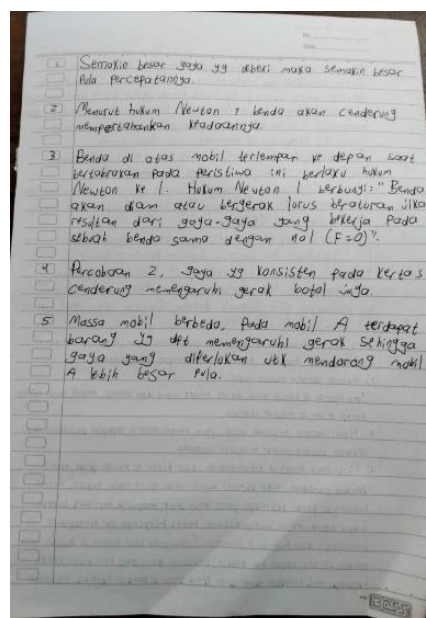 1 Semakin besar gaya yg diberi maka semakin besar
pula percepatannya.
2 Menurut hukum Newton 1 benda akan cenderung
mempertahankan keadaannya.
3 Benda di atas mobil terlempar ke depan saat
bertabrakan pada peristiwa ini berlaku hukum
Newton ke 1. Hukum Newton 1 berbunyi: "Benda
akan diam atau bergerak lurus beraturan jika
resultan dari gaya-gaya yang bekerja pada
sebuah benda sama dengan nol (F=0)".
4 Percobaan 2, gaya yg konsisten pada kertas
cenderung memengaruhi gerak botol juga.
5 Massa mobil berbeda, pada mobil A terdapat
barang yg dpt memengaruhi gerak sehingga
gaya yang diperlukan utk mendorong mobil
A lebih besar pula.